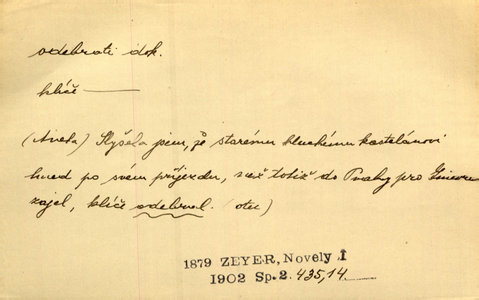 odebrati dok.
klíče ———
(Aneta) Slyšela jsem, že starému hluchému kastelánovi
hned po svém příjezdu, než totiž do Prahy pro
zajel, klíče odebral. (otec)
1879 ZEYER, Novely I
1902 Sp. 2. 435,14.